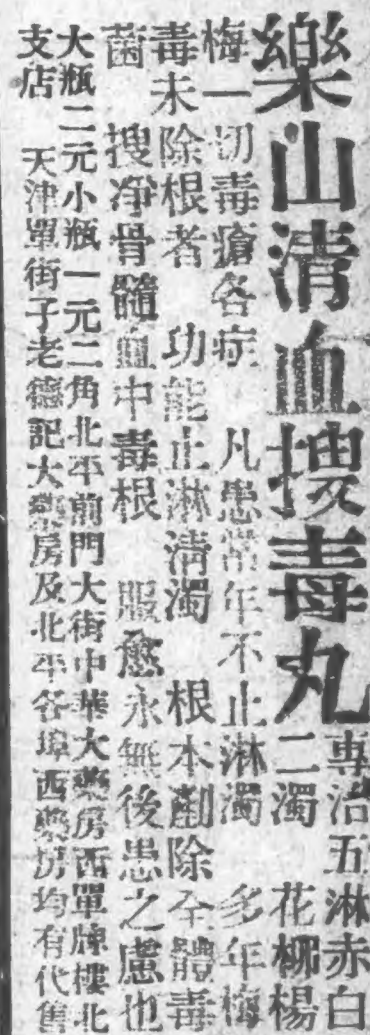 樂山清血搜毒丸
專治五淋赤白
二濁　花柳楊
梅一切毒瘡各症　凡患常年不止淋濁　多年梅
毒未除根者　功能止淋清濁　根本剷除全體毒
菌　搜凈骨髓血中毒根　服愈永無後患之慮也
大瓶二元小瓶一元二角北平前門大街中華大藥房西單牌樓北
支店　天津單街子老德記大藥房及北平各埠西藥房均有代售